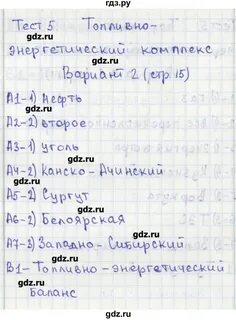 гдз.ру
Тест 5 Топливно-
энергетический комплекс
Вариант 2 (стр. 15)
А1-1) Нефть
А2-2) второе
А3-1) уголь
А4-2) Канско-Ачинский
А5-2) Сургут
А6-2) Белоярская
А7-2) Западно-Сибирский
В1-Топливно-энергетический
Баланс